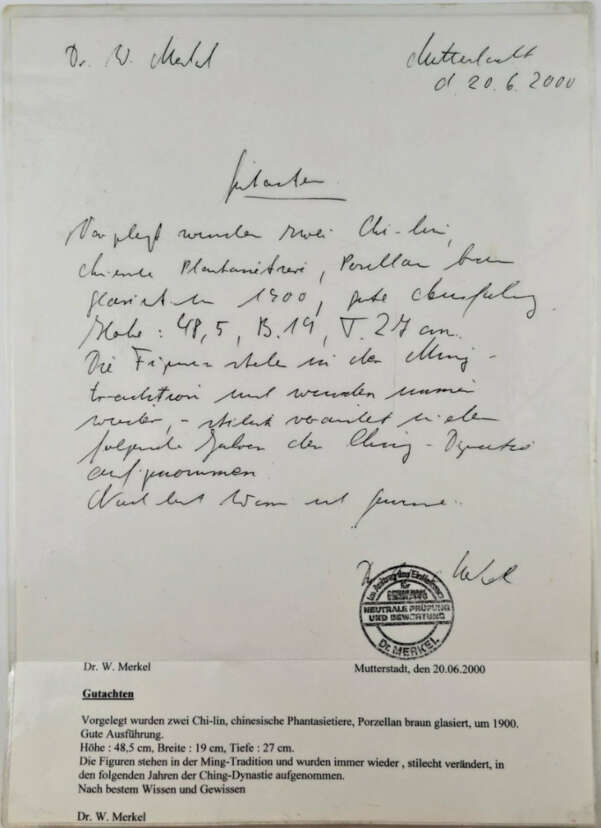 Dr. W. Merkel
Mutterstadt
d. 20. 6. 2000
Gutachten
Vorgelegt wurden zwei Chi-lin,
chinesische Phantasietiere, Porzellan braun
glasiert um 1900, gute Ausführung
Höhe : 48,5, B. 19, T. 27 cm.
Die Figuren stehen in der Ming-
tradition und wurden immer
wieder, - stilecht verändert in den
folgenden Jahren der Ching-Dynastie
aufgenommen
Merkel
NEUTRALE PRÜFUNG
UND BEWERTUNG
Dr. MERKEL
Dr. W. Merkel
Mutterstadt, den 20.06.2000
Gutachten
Vorgelegt wurden zwei Chi-lin, chinesische Phantasietiere, Porzellan braun glasiert, um 1900.
Gute Ausführung.
Höhe : 48,5 cm, Breite : 19 cm, Tiefe : 27 cm.
Die Figuren stehen in der Ming-Tradition und wurden immer wieder , stilecht verändert, in
den folgenden Jahren der Ching-Dynastie aufgenommen.
Nach bestem Wissen und Gewissen
Dr. W. Merkel